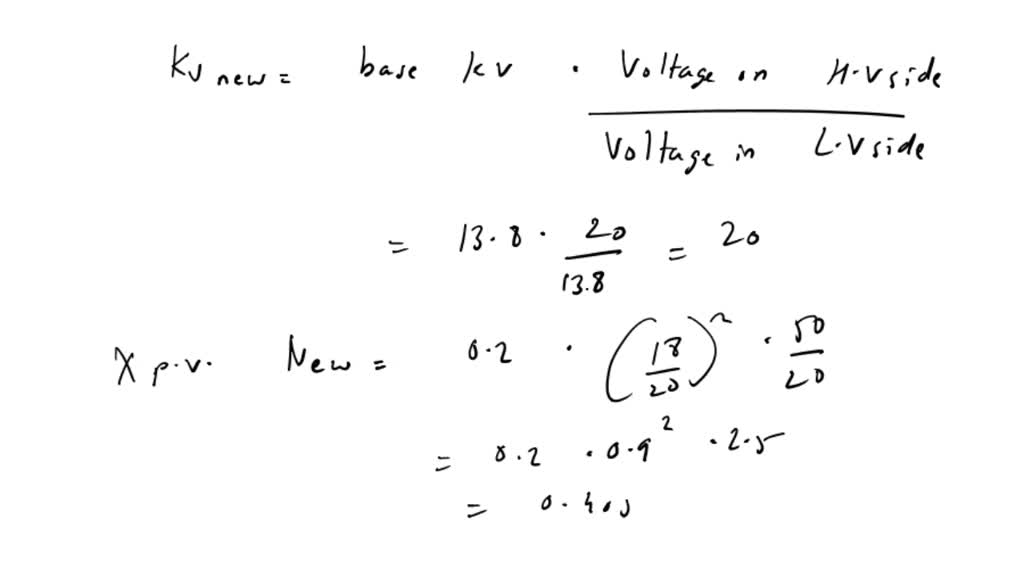 Kv new = base kv · Voltage on H·V side
Voltage in L·V side
= 13.8 · 20 / 13.8 = 20
X p.v. New = 0.2 · (18/20)² · 50/20
= 0.2 · 0.9² · 2.5
= 0.405